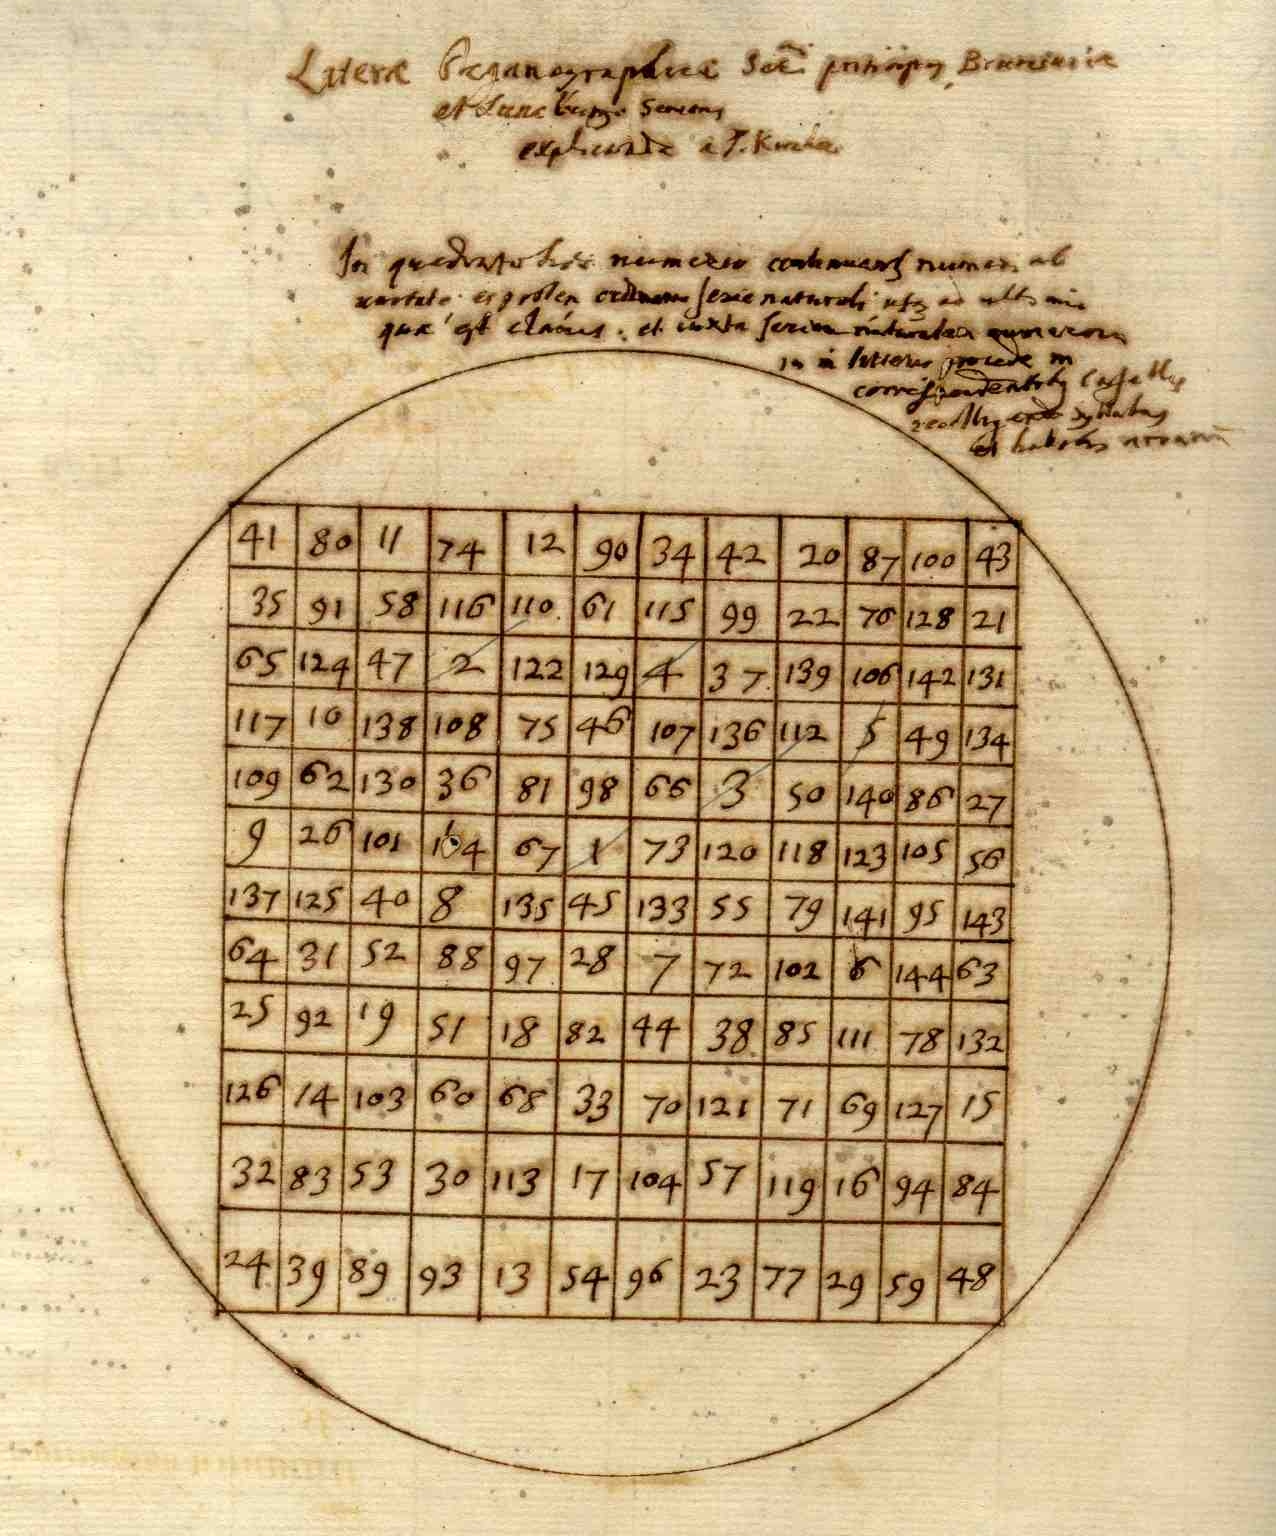 Literæ Steganographicæ principis
et Lune
explicandæ a P. Kircher
In quadrato hoc numeros numeros ab
serie naturali usq ad
quæ est clavis. et iuxta seriem naturalem numerorum
in literis procede in
correspondentibus
41 80 11 74 12 90 34 42 20 87 100 43
35 91 58 116 110 61 115 99 22 76 128 21
65 124 47 2 122 129 4 37 139 106 142 131
117 10 138 108 75 46 107 136 112 5 49 134
109 62 130 36 81 98 66 3 50 140 86 27
9 26 101 67 1 73 120 118 123 105 56
137 125 40 8 135 45 133 55 79 141 95 143
64 31 52 88 97 28 7 72 102 6 144 63
25 92 19 51 18 82 44 38 85 111 78 132
126 14 103 60 68 33 70 121 71 69 127 15
32 83 53 30 113 17 104 57 119 16 94 84
24 39 89 93 13 54 96 23 77 29 59 48